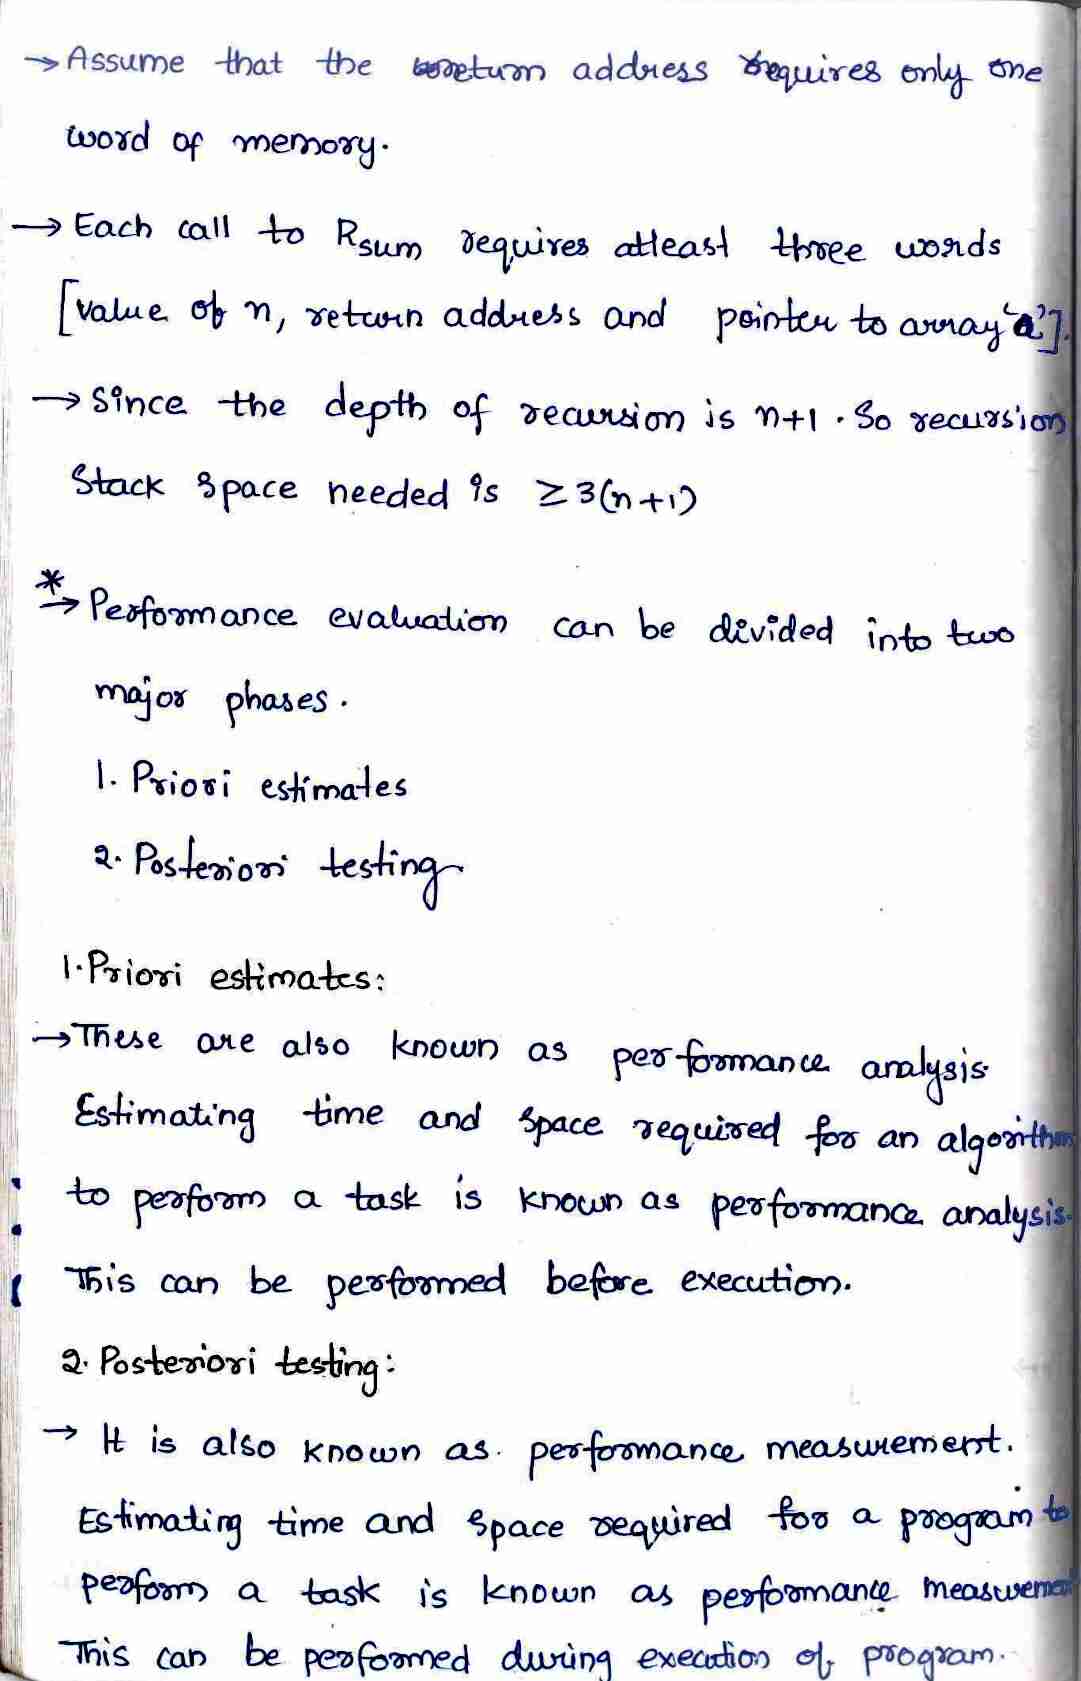 → Assume that the return address requires only one
word of memory.
→ Each call to Rsum requires atleast three words
[value of n, return address and pointer to array 'a'].
→ Since the depth of recursion is n+1. So recursion
Stack space needed is ≥ 3(n+1)
*
→ Performance evaluation can be divided into two
major phases.
1. Priori estimates
2. Posteriori testing
1. Priori estimates:
→ These are also known as performance analysis.
Estimating time and space required for an algorithm
to perform a task is known as performance analysis.
This can be performed before execution.
2. Posteriori testing:
→ It is also known as performance measurement.
Estimating time and space required for a program to
perform a task is known as performance measurement
This can be performed during execution of program.